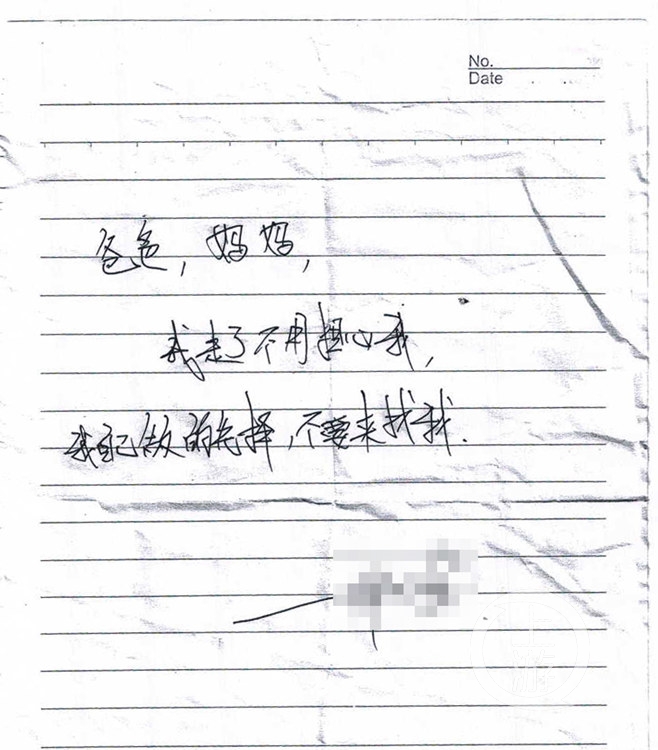 No.
Date
爸爸，妈妈，
我走了不用担心我，
我自己做的选择，不要来找我.